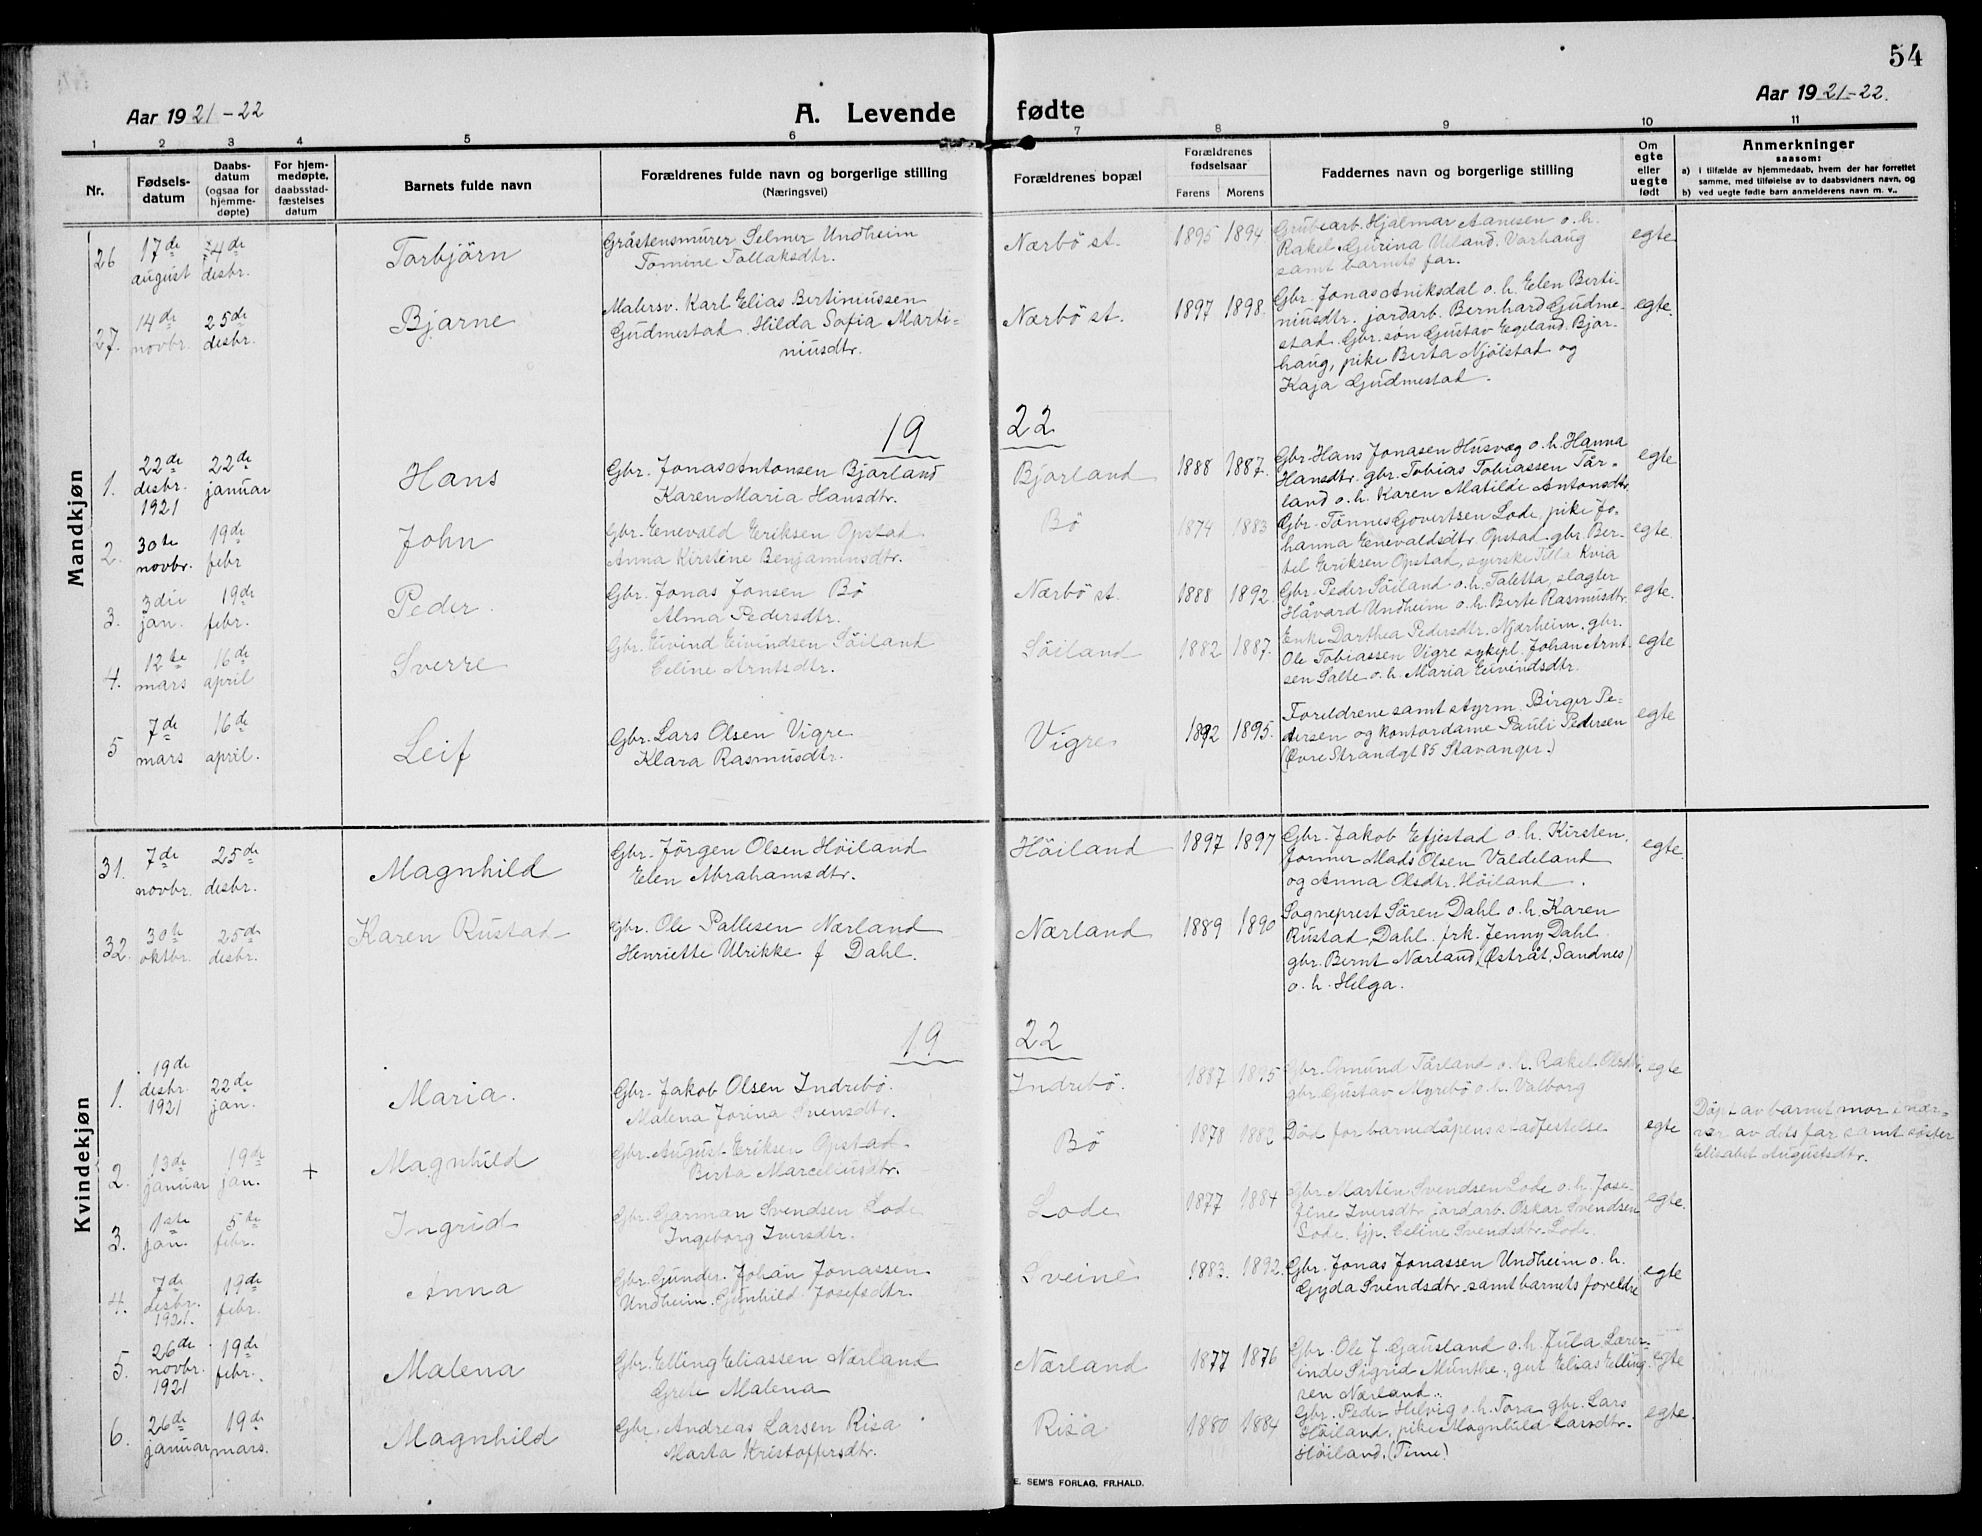 54
Aar 1921-22
A. Levende fødte
Aar 1921-22.
1 2 3 4 5 6 7 8 9 10 11
Nr.
Fødsels-
datum
Daabs-
datum
(ogsaa for
hjemme-
døpte)
For hjem-
medøpte,
daabsstad-
fæstelses
datum
Barnets fulde navn
Forældrenes fulde navn og borgerlige stilling
(Næringsvei)
Forældrenes bopæl
Forældrenes
fødselsaar
Farens Morens
Faddernes navn og borgerlige stilling
Om
egte
eller
uegte
født
Anmerkninger
saasom:
a) i tilfælde av hjemmedaab, hvem der har forrettet
samme, med tilføielse av to daabsvidners navn, og
b) ved uegte fødte barn anmelderens navn m. v..
Mandkjøn
26 17de august 4de desbr. Torbjörn
Gråstensmurer Selmer Undheim
Tomine Tollaksdtr.
Nærbö st. 1895 1894
Grubearb. Hjalmar Aanesen o.h.
Rakel Gurina Ueland. Varhaug
samt barnets far.
egte
27. 14de novbr. 25de desbr. Bjarne
Malersv. Karl Elias Bertiniussen
Gudmestad Hilda Sofia Marti-
niusdtr.
Nærbö st. 1897 1898.
Gbr. Jonas Aniksdal o.h. Elen Berti-
niusdtr. jordarb. Bernhard Gudme-
stad. Gbr. sön Gustav Egeland. Bjor-
haug, pike Berta Njölstad og
Kaja Gudmestad.
egte.
19 22
1. 22de desbr. 1921 22de januar Hans
Gbr. Jonas Antonsen Bjorland
Karen Maria Hansdtr.
Bjorland 1888 1887.
Gbr. Hans Jonasen Husvæg o.h. Hanna
Hansdtr. gbr. Tobias Tobiassen Tår-
land o.h. Karen Matilde Antonsdtr.
egte
2. 30te novbr. 19de febr John
Gbr. Enevald Eriksen Opstad
Anna Kirstine Benjaminsdtr.
Bö 1874 1883
Gbr. Tönnes Govertsen Lode, pike Jo-
hanna Enevaldsdtr Opstad, gbr. Ber-
tel Eriksen Opstad, syerske Tilla Kvia
egte.
3. 3die jan. 19de febr. Peder
Gbr. Jonas Jonsen Bö
Alma Pedersdtr.
Nærbö st. 1888 1892.
Gbr. Peder Söiland o.h. Taletta, slagter
Håvard Undheim o.h. Berte Rasmusdtr.
egte.
4. 12te mars 16de april Sverre
Gbr. Eivind Eivindsen Söiland
Celine Arntsdtr.
Söiland 1882 1887.
Enke Darthea Pedersdtr. Njærheim, gbr.
Ole Tobiassen Vigre sykepl. Johan Arnt-
sen Salte o.h. Maria Eivindsdtr.
egte
5 7de mars 16de april. Leif
Gbr. Lars Olsen Vigre
Klara Rasmusdtr.
Vigre 1892 1895.
Foreldrene samt styrm. Birger Pe-
dersen og kontordame Pauli Pedersen
(Övre Strandgt 85 Stavanger.)
egte
Kvindekjøn
31. 7de novbr. 25de desbr. Magnhild
Gbr. Jörgen Olsen Höiland
Elen Abrahamsdtr.
Höiland 1897 1897
Gbr. Jakob Efjestad o.h. Kirsten,
former Mads Olsen Valdeland
og Anna Olsdtr. Höiland.
egte.
32. 30te oktbr. 25de desbr. Karen Rustad
Gbr. Ole Pallesen Nærland
Henriette Ulrikke f Dahl.
Nærland 1889 1890
Sogneprest Sören Dahl o.h. Karen
Rustad Dahl. frk. Jenny Dahl
gbr. Bernt Nærland (Östråt, Sandnes)
o.h. Helga.
19 22
1. 19de desbr 1921 22de jan. Maria.
Gbr. Jakob Olsen Indrebö.
Malena Jorina Svensdtr.
Indrebö. 1887 1895
Gbr. Omund Tårland o.h. Rakel Olsdtr.
gbr. Gustav Myrebö o.h. Valborg
egte
2. 13de januar 19de jan. + Magnhild
Gbr. August Eriksen Opstad.
Birta Marceliusdtr.
Bö 1878 1882
Död for barnedåpens stadfestelse
egte
Döpt av barnet mor i nær-
vær av dets far samt söster
Elisabet Augustsdtr.
3. 1ste jan. 5te febr. Ingrid
Gbr. Garman Svendsen Lode
Ingeborg Iversdtr.
Lode 1877 1884
Gbr. Martin Svendsen Lode o.h. Jose-
fine Iversdtr jordarb. Oskar Svendsen
Lode. tjp. Celine Svendsdtr Lode.
egte.
4. 7de desbr. 1921. 19de febr. Anna
Gbr. Gunder Johan Jonassen
Undheim. Gunhild Josefsdtr.
Sveine 1883. 1892.
Gbr. Jonas Jonassen Undheim o.h.
Gyda Svendsdtr. samt barnets foreldre
egte
5. 26de novbr. 1921 19de febr. Malena
Gbr. Elling Eliassen Nærland
Grete Malena
Nærland 1877 1876
Gbr. Ole J. Gausland o.h. Jula Lærer-
inde Sigrid Munthe, gut Elias Elling-
sen Nærland.
egte
6. 26de januar 19de mars. Magnhild
Gbr. Andreas Larsen Risa
Marta Kristoffersdtr.
Risa 1880 1884
Gbr. Peder Helvig o.h. Tora gbr. Lars
Höiland, pike Magnhild Larsdtr.
Höiland. (Time)
egte.
E. SEM'S FORLAG, FR.HALD.